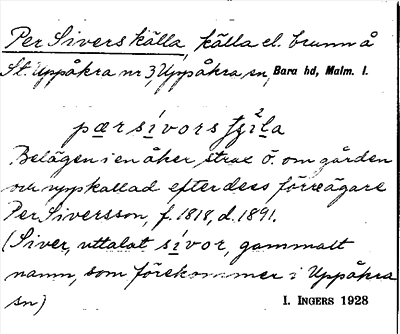 Per Siverskälla, källa el. brunn å
St. Uppåkra nr 3, Uppåkra sn, Bara hd, Malm. l.
pærsívors
Belägen i en åker, strax ö. om gården
och uppkallad efter dess förre ägare
Per Siversson, f. 1818, d. 1891.
(Siver, uttalat sívor, gammalt
namn, som förekommer i Uppåkra
sn)
I. INGERS 1928